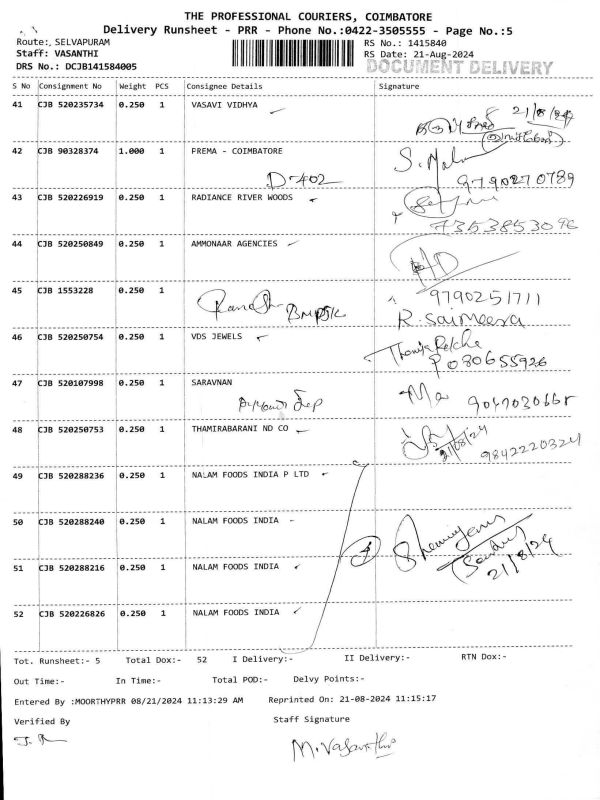 THE PROFESSIONAL COURIERS, COIMBATORE
Delivery Runsheet - PRR - Phone No.:0422-3505555 - Page No.:5
Route:, SELVAPURAM
RS No.: 1415840
Staff: VASANTHI
RS Date: 21-Aug-2024
DRS No.: DCJB141584005
DOCUMENT DELIVERY
S No Consignment No Weight PCS Consignee Details Signature
41 CJB 520235734 0.250 1 VASAVI VIDHYA
21/8/24
42 CJB 90328374 1.000 1 PREMA - COIMBATORE
D-402
9790270789
43 CJB 520226919 0.250 1 RADIANCE RIVER WOODS
7353853096
44 CJB 520250849 0.250 1 AMMONAAR AGENCIES
45 CJB 1553228 0.250 1
9790251711
R. saimeera
46 CJB 520250754 0.250 1 VDS JEWELS
47 CJB 520107998 0.250 1 SARAVNAN
48 CJB 520250753 0.250 1 THAMIRABARANI ND CO
21/08/24
9842220324
49 CJB 520288236 0.250 1 NALAM FOODS INDIA P LTD
50 CJB 520288240 0.250 1 NALAM FOODS INDIA
4
51 CJB 520288216 0.250 1 NALAM FOODS INDIA
21/8/24
52 CJB 520226826 0.250 1 NALAM FOODS INDIA
Tot. Runsheet:- 5 Total Dox:- 52 I Delivery:- II Delivery:- RTN Dox:-
Out Time:- In Time:- Total POD:- Delvy Points:-
Entered By :MOORTHYPRR 08/21/2024 11:13:29 AM Reprinted On: 21-08-2024 11:15:17
Verified By Staff Signature
M.Vasanthi